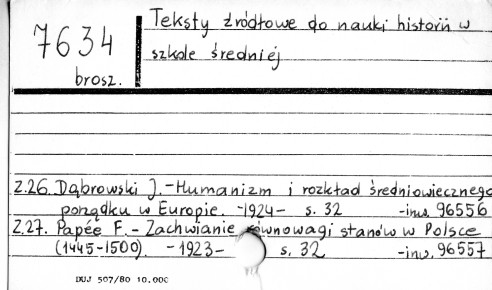 7634
brosz.
Teksty źródłowe do nauki historii w
szkole średniej
Z.26. Dąbrowski J. - Humanizm i rozkład średniowiecznego
porządku w Europie. -1924- s. 32 -inw. 96556
Z.27. Papée F. - Zachwianie równowagi stanów w Polsce
(1445-1500). -1923- s. 32 -inw. 96557
DUJ 507/80 10.000